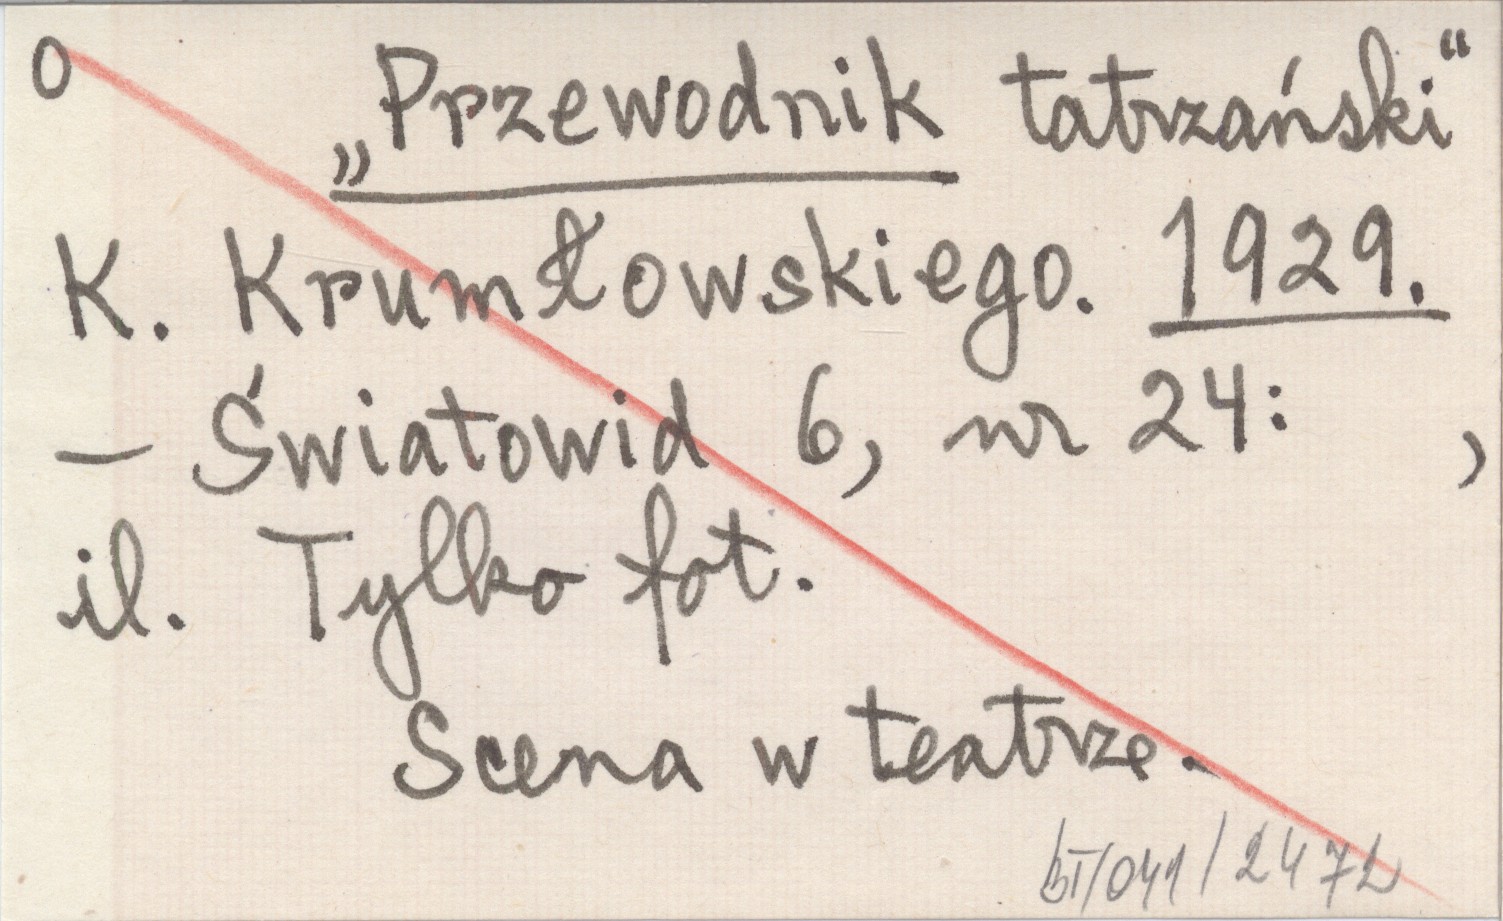 O
„Przewodnik tatrzański“
K. Krumłowskiego. 1929.
– Światowid 6, nr 24: ,
il. Tylko fot.
Scena w teatrze.
BT/041/2472